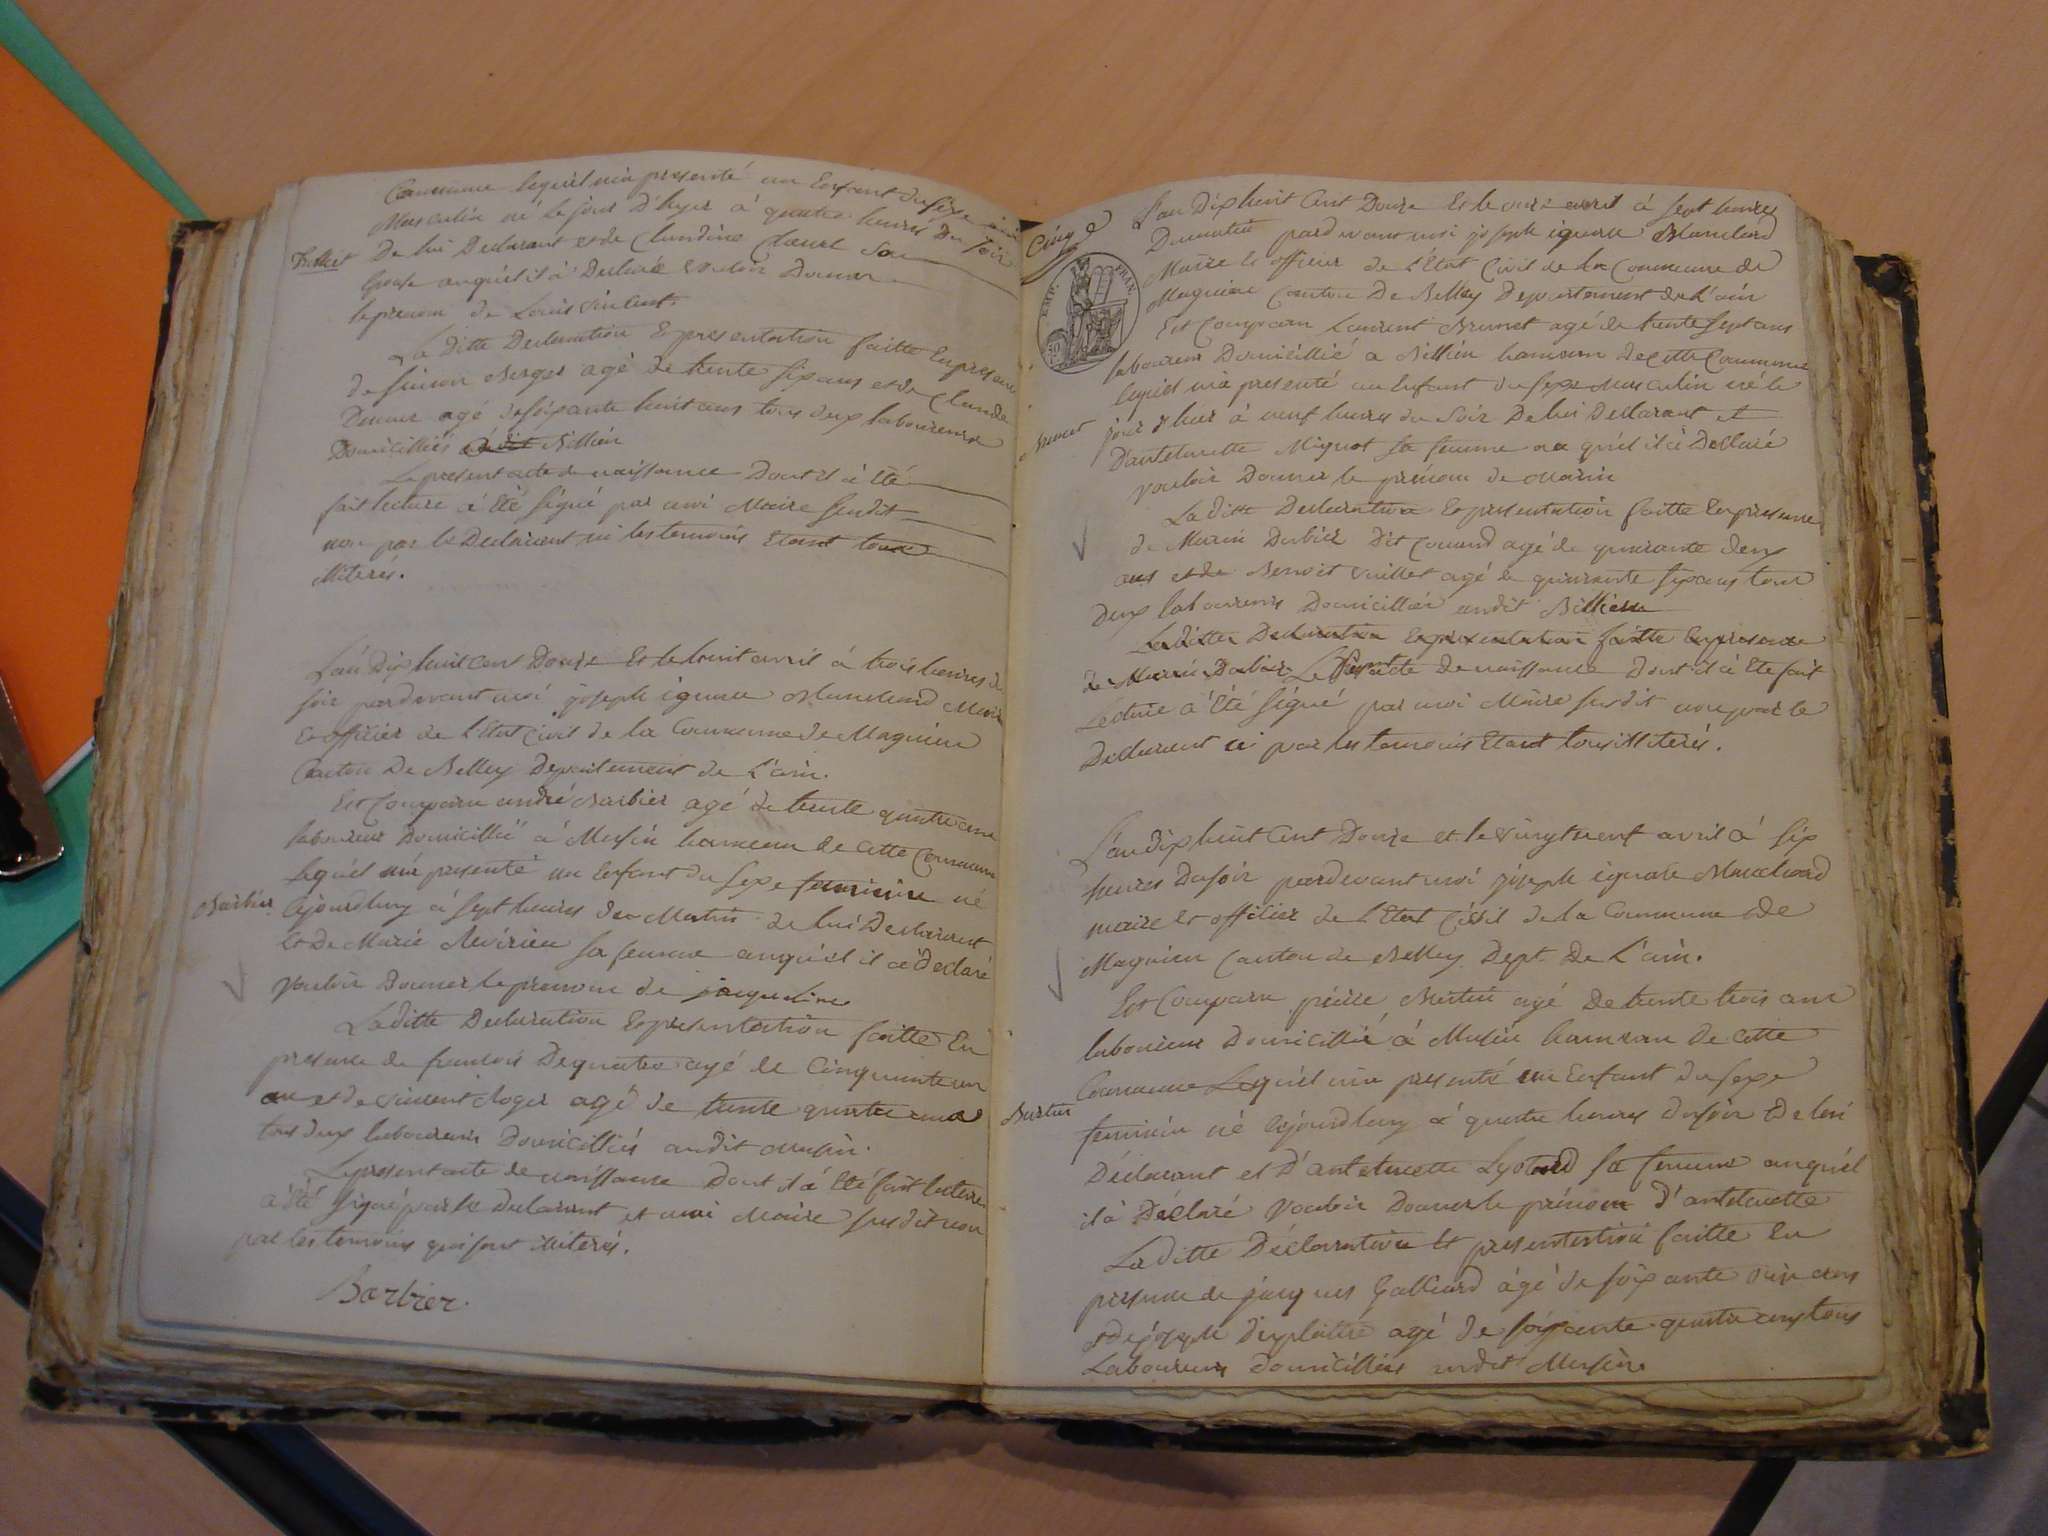 Commune lequel m'a presenté un Enfant du sexe
Masculin né le jour D'hyer à quatre heures Du soir
De lui Declarant et de Claudine Sa
auquel il à Declaré vouloir Donner
le prenom de Louis Vincent.
La ditte Declaration Et presentation faitte En presence
de Simon Berger agé de trente six ans et de Claude
agé de soixante huit ans tous deux laboureurs
Domicilliés Billien
Le present acte de naissance Dont il à Eté
fait lecture à Eté signé par moi Maire susdit
non par le Declarant ni les temoins Etant tous
illiterés.
L'an Dix huit cent Douze Et le huit avril à trois heures du
soir pardevant moi joseph ignace Blanchard Maire
Et officier de l'Etat Civil de la Commune de Magnieu
Canton De Belley Departement de L'ain.
Est Comparu andré Barbier agé de trente quatre ans
laboureur Domicillié à Musin hameau de cette Commune
lequel m'a presenté un Enfant du sexe feminin né
Barbier
cejourdhuy à sept heures du Matin de lui Declarant
Et De Marie sa femme auquel il à Declaré
vouloir Donner le prenom de jacqueline
La ditte Declaration Et presentation faitte En
presence de francois Dequatre agé de Cinquante un
an et de vincent Roger agé de trente quatre ans
tous deux laboureurs Domicilliés audit Musin.
Le present acte de naissance Dont il à Eté fait lecture
à Eté signé par le Declarant et moi Maire susdit non
par les temoins qui sont illiterés.
Barbier.
Cinq
EMP. FRAN.
L'an Dix huit Cent Douze Et le onze avril à sept heures
Du matin pardevant moi joseph ignace Blanchard
Maire Et officier de L'Etat Civil de la Commune de
Magnieu Canton De Belley Departement de L'ain
Est Comparu Laurent Brunet agé de trente sept ans
laboureur Domicillié a Billien hameau de cette Commune
lequel m'a presenté un Enfant du sexe Masculin né le
Brunet
jour d'hier à neuf heures du Soir De lui Declarant et
D'antelmette Mignot sa femme au quel il à Declaré
vouloir Donner le prénom de Marin
La ditte Declaration Et presentation faitte En presence
de Marin Barbier Dit agé de quarante deux
ans et de Benoit vuillet agé de quarante six ans tous
deux laboureurs Domicilliés audit Billien
La ditte Declaration Et presentation faitte En presence
de Marin Barbier Le present acte de naissance Dont il à Eté fait
Lecture à Eté signé par moi Maire susdit non par le
Declarant ni par les temoins Etant tous illiterés.
L'an dix huit Cent Douze et le vingt neuf avril à six
heures Du soir pardevant moi joseph ignace Blanchard
maire Et officier de l'Etat Civil de la Commune De
Magnieu Canton de Belley Dept. De L'ain.
Est Comparu pierre agé De trente trois ans
laboureur Domicillié à Musin hameau De cette
Commune Lequel m'a presenté un Enfant du sexe
feminin né cejourdhuy à quatre heures du soir De lui
Déclarant et D'antelmette sa femme auquel
il à Déclaré vouloir Donner le prénom D'antelmette
La ditte Déclaration Et presentation faitte En
presence de jacques Galliard âgé de soixante ans
et de joseph agé de soixante quatre ans tous
Laboureurs Domicilliés audit Musin